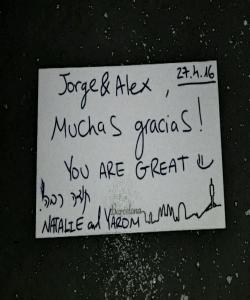 Jorge & Alex,
27.4.16
Muchas gracias!
YOU ARE GREAT
תודה רבה!
Barcelona
NATALIE and YAROM